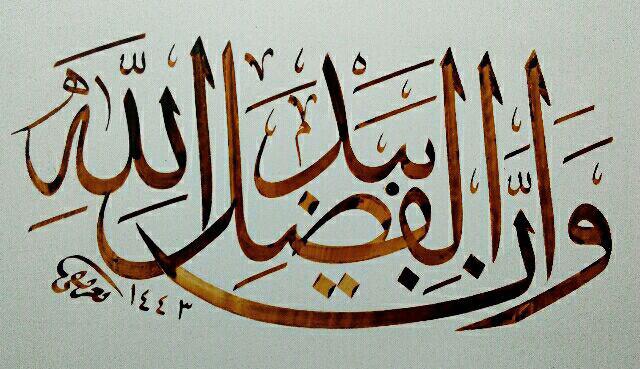 وَأَنَّ الْفَضْلَ بِيَدِ اللَّهِ
١٤٤٣